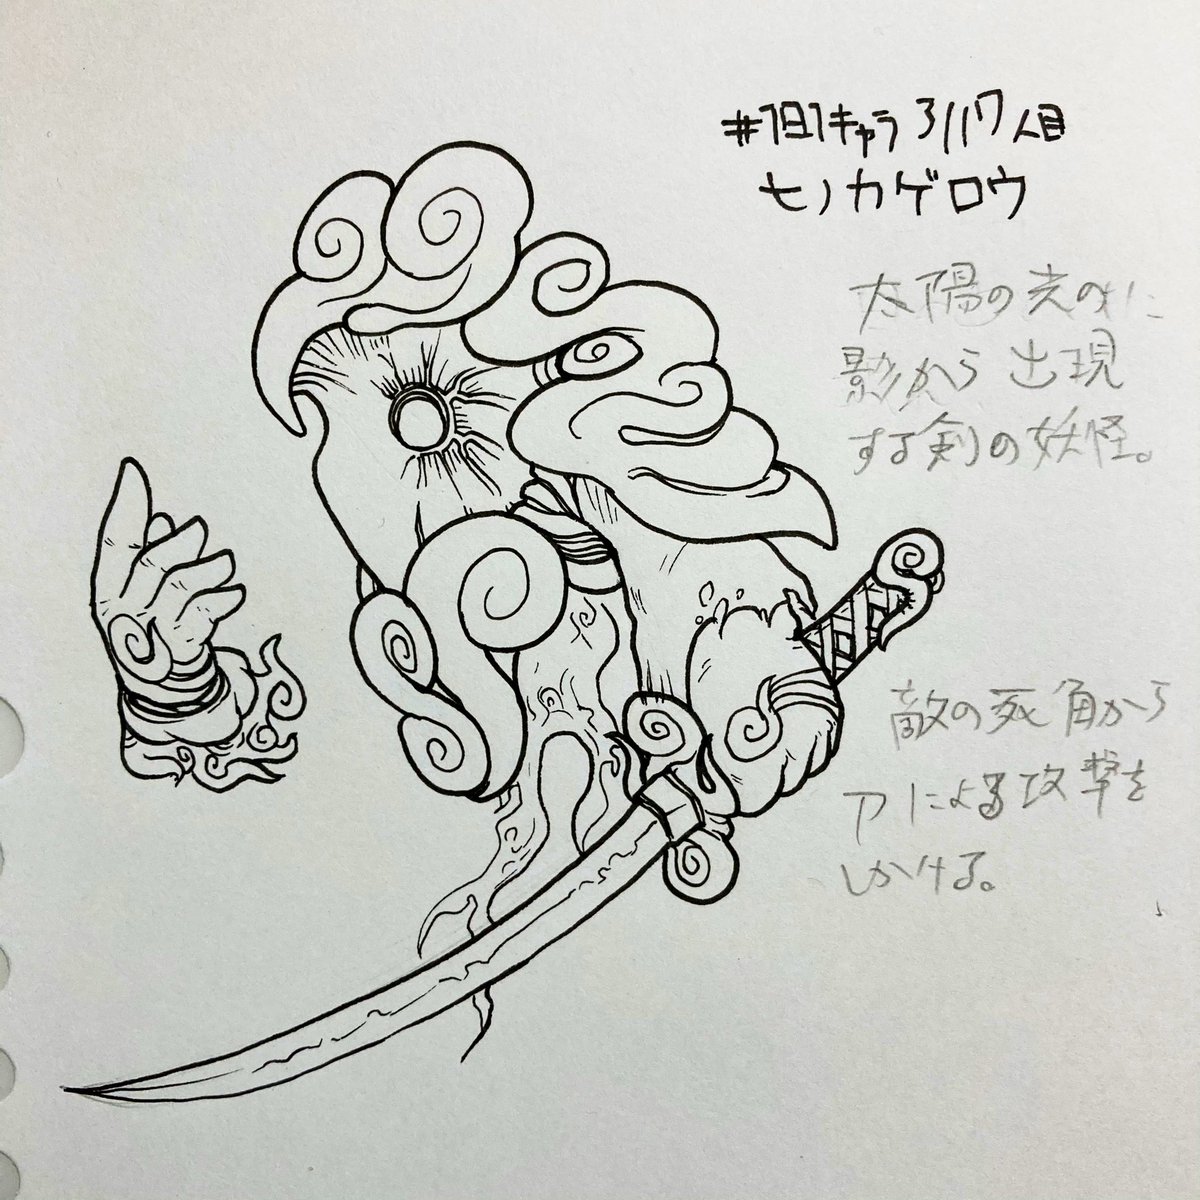 #1日1キャラ 3117人目
ヒノカゲロウ
太陽の光の
影から出現
する剣の妖怪。
敵の死角から
刀による攻撃を
しかける。